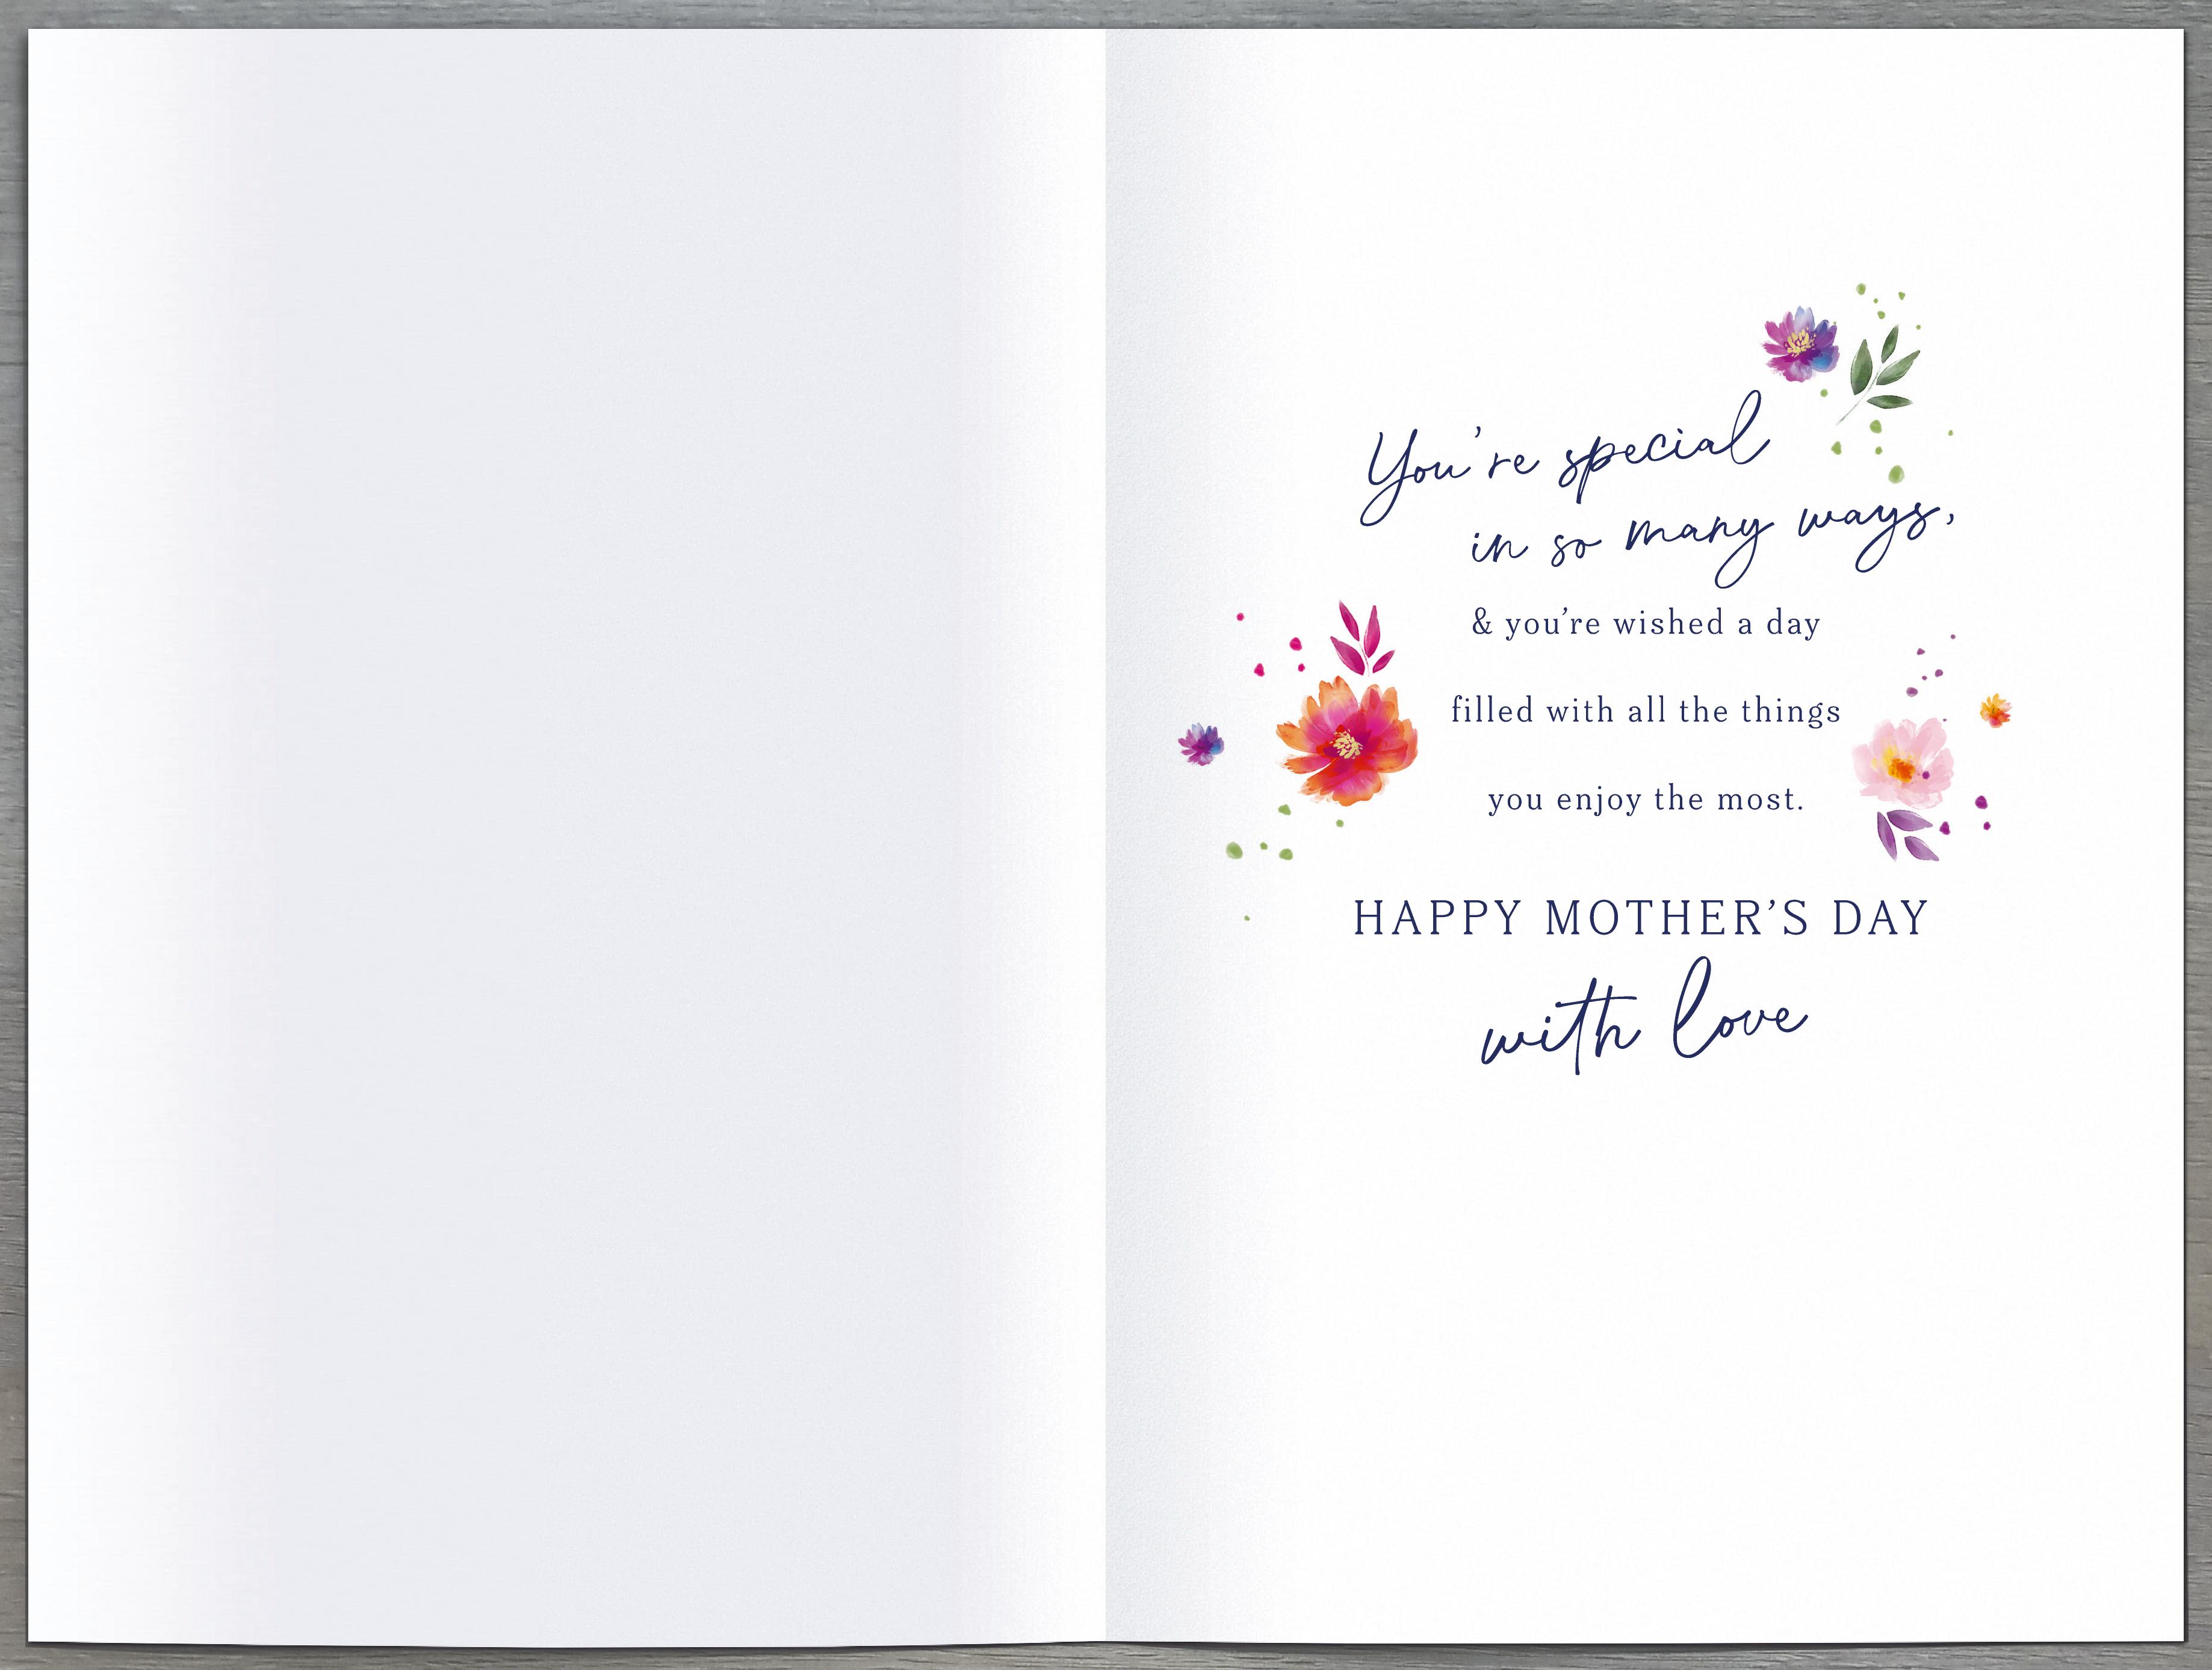 You're special
in so many ways,
& you're wished a day
filled with all the things
you enjoy the most.
HAPPY MOTHER'S DAY
with love